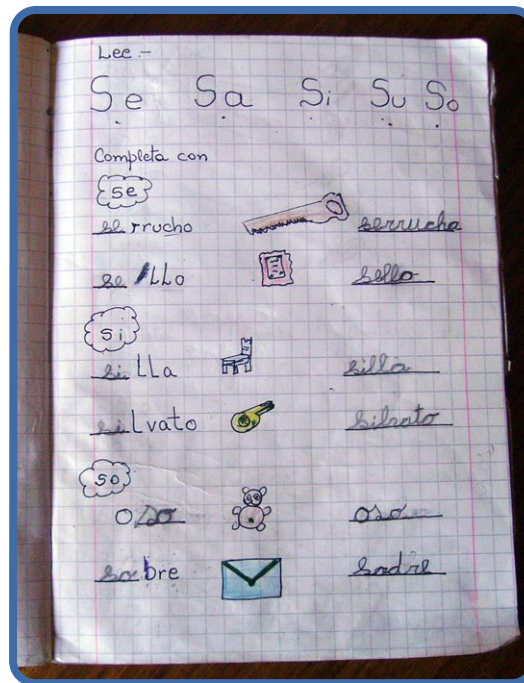 Lee.-
Se Sa Si Su So
Completa con
se
serrucho serrucho
sello sello
si
silla silla
silvato silvato
so
oso oso
sobre sodre